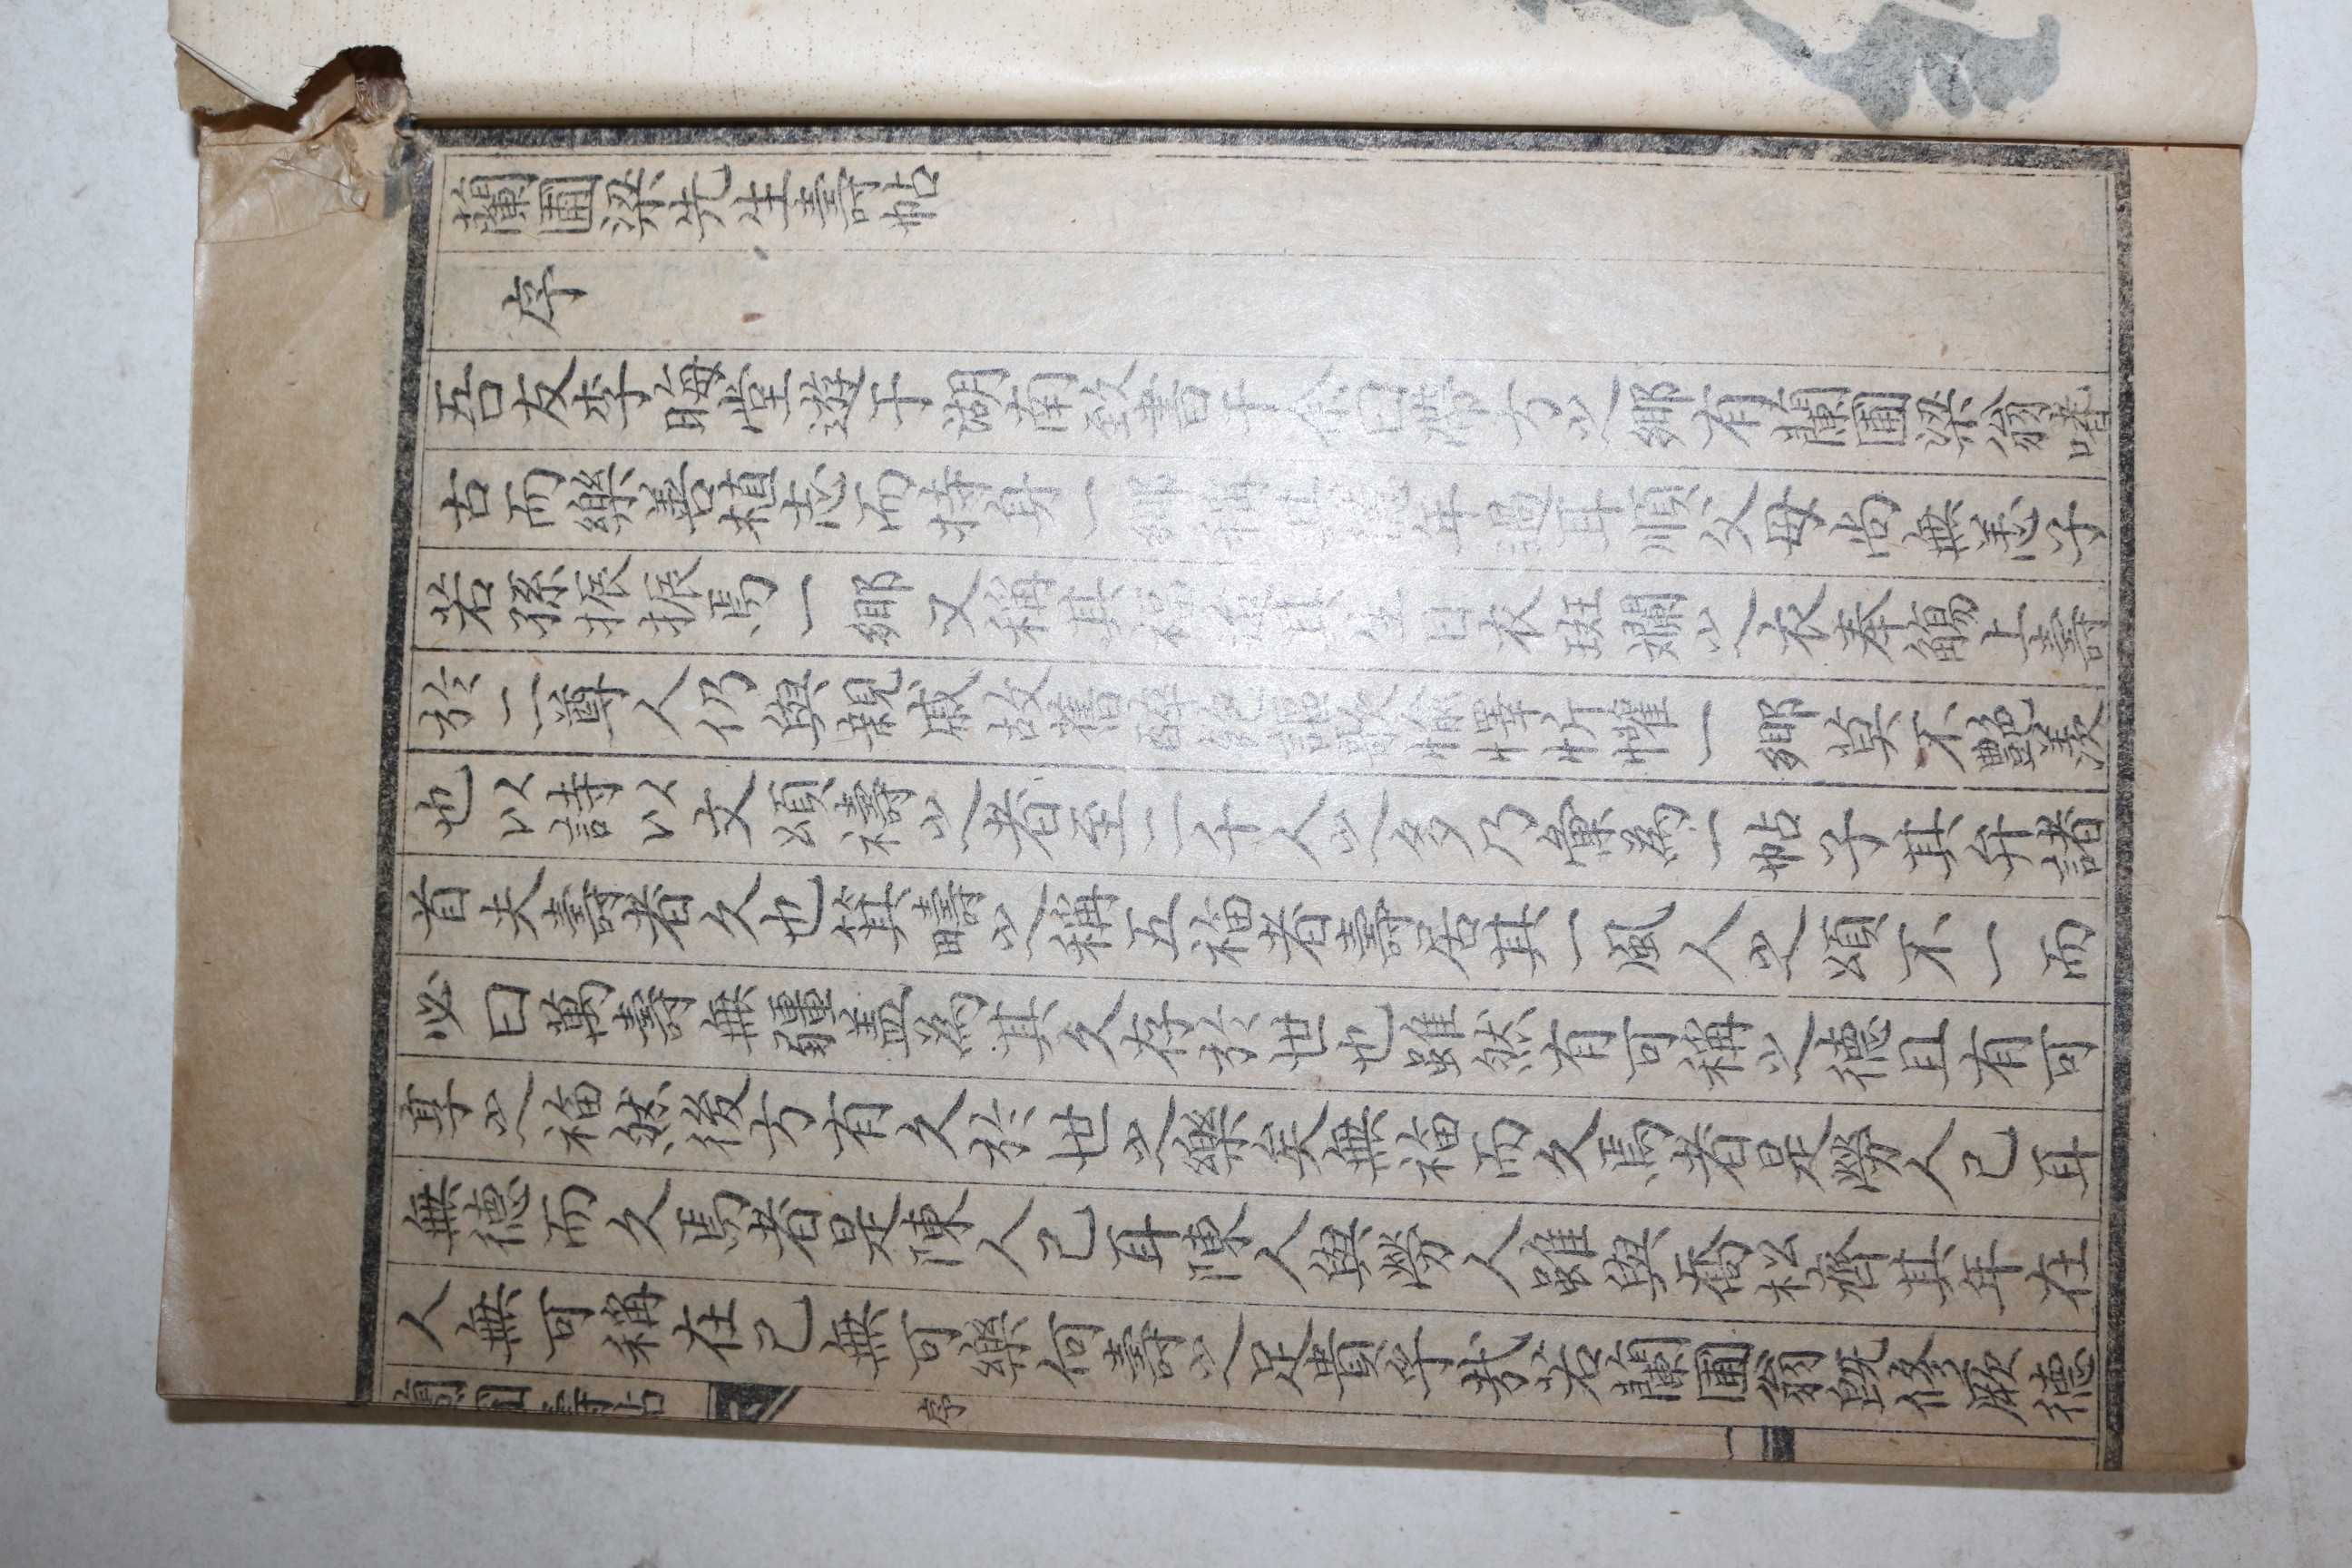 蘭圃梁先生壽帖
序
吾友李晦堂遊于湖南致書于余曰帶方之鄕有蘭圃梁翁嗜
古而樂善植志而持身一鄕稱其德年過耳順父母尚無恙子
若孫振振焉一鄕又稱其福在其生日衣班斕之衣奉觴上壽
於二尊人仍與親戚故舊酔飽謳歌愉懌忻懽一鄕莫不艶羡
也以詩以文頌禱之者至二千人之多乃彙爲一帖子其弁諸
首夫壽者久也箕疇之稱五福者壽居其一風人之頌不一而
必曰萬壽無疆盖爲其久存於世也雖然有可稱之德且有可
享之福然後方有久於世之樂矣無福而久焉者是勞人已耳
無德而久焉者是陳人已耳陳人與勞人雖與喬松齊其年在
人無可稱在己無可樂何壽之足貴乎哉若蘭圃翁旣修厥德
蘭圃壽帖 序 一